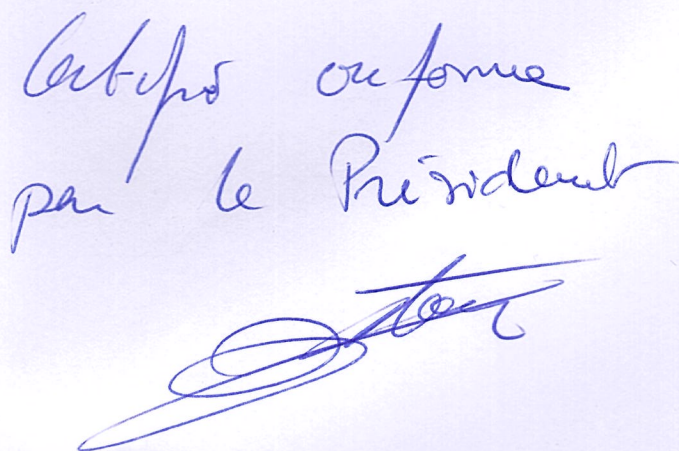 Certifié conforme
par le Président